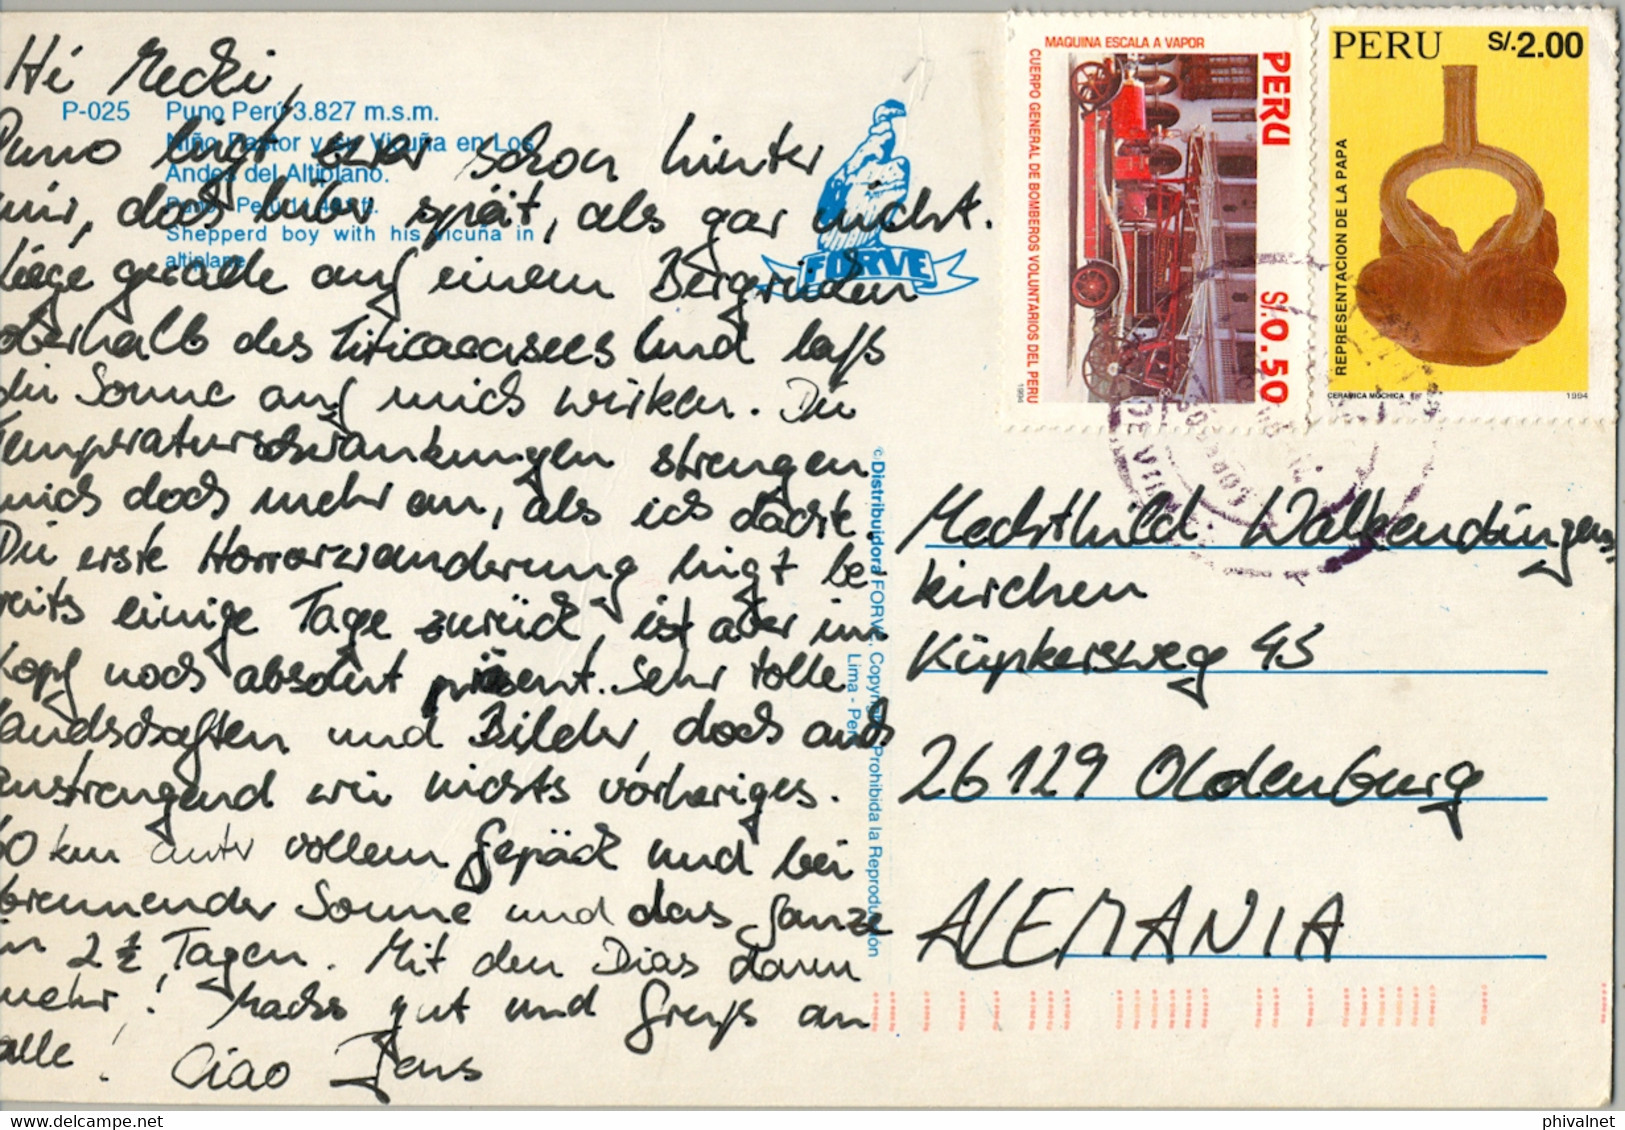 Hi Mecki,
P-025 Puno Perú 3.827 m.s.m.
Niño Pastor y su Vicuña en Los
Andes del Altiplano.
Puno - Perú ft.
Shepperd boy with his vicuña in
altiplane
FORVE
Puno liegt zwar schon hinter
mir, doch lieber spät, als gar nicht.
Liege gerade auf einem Bergrücken
oberhalb des Titicacasees und laß
die Sonne auf mich wirken. Die
Temperaturschwankungen strengen
mich doch mehr an, als ich dachte.
Die erste Horrorwanderung liegt be-
reits einige Tage zurück, ist aber im
Kopf noch absolut präsent. Sehr tolle
Landschaften und Bilder, doch auch
anstrengend wie nichts vorheriges.
60 km unter vollem Gepäck und bei
brennender Sonne und das ganze
in 2 ½ Tagen. Mit den Dias dann
mehr! Machs gut und Grüß an
alle! Ciao Jens
© Distribuidora FORVE. Copyright Prohibida la Reproducción
Lima - Perú
MAQUINA ESCALA A VAPOR
CUERPO GENERAL DE BOMBEROS VOLUNTARIOS DEL PERU
PERU
S/.0.50
1994
PERU S/.2.00
REPRESENTACION DE LA PAPA
CERAMICA MOCHICA 1994
Mechthild Walkendüngens
kirchen
Küpkersweg 45
26129 Oldenburg
ALEMANIA
phivalnet